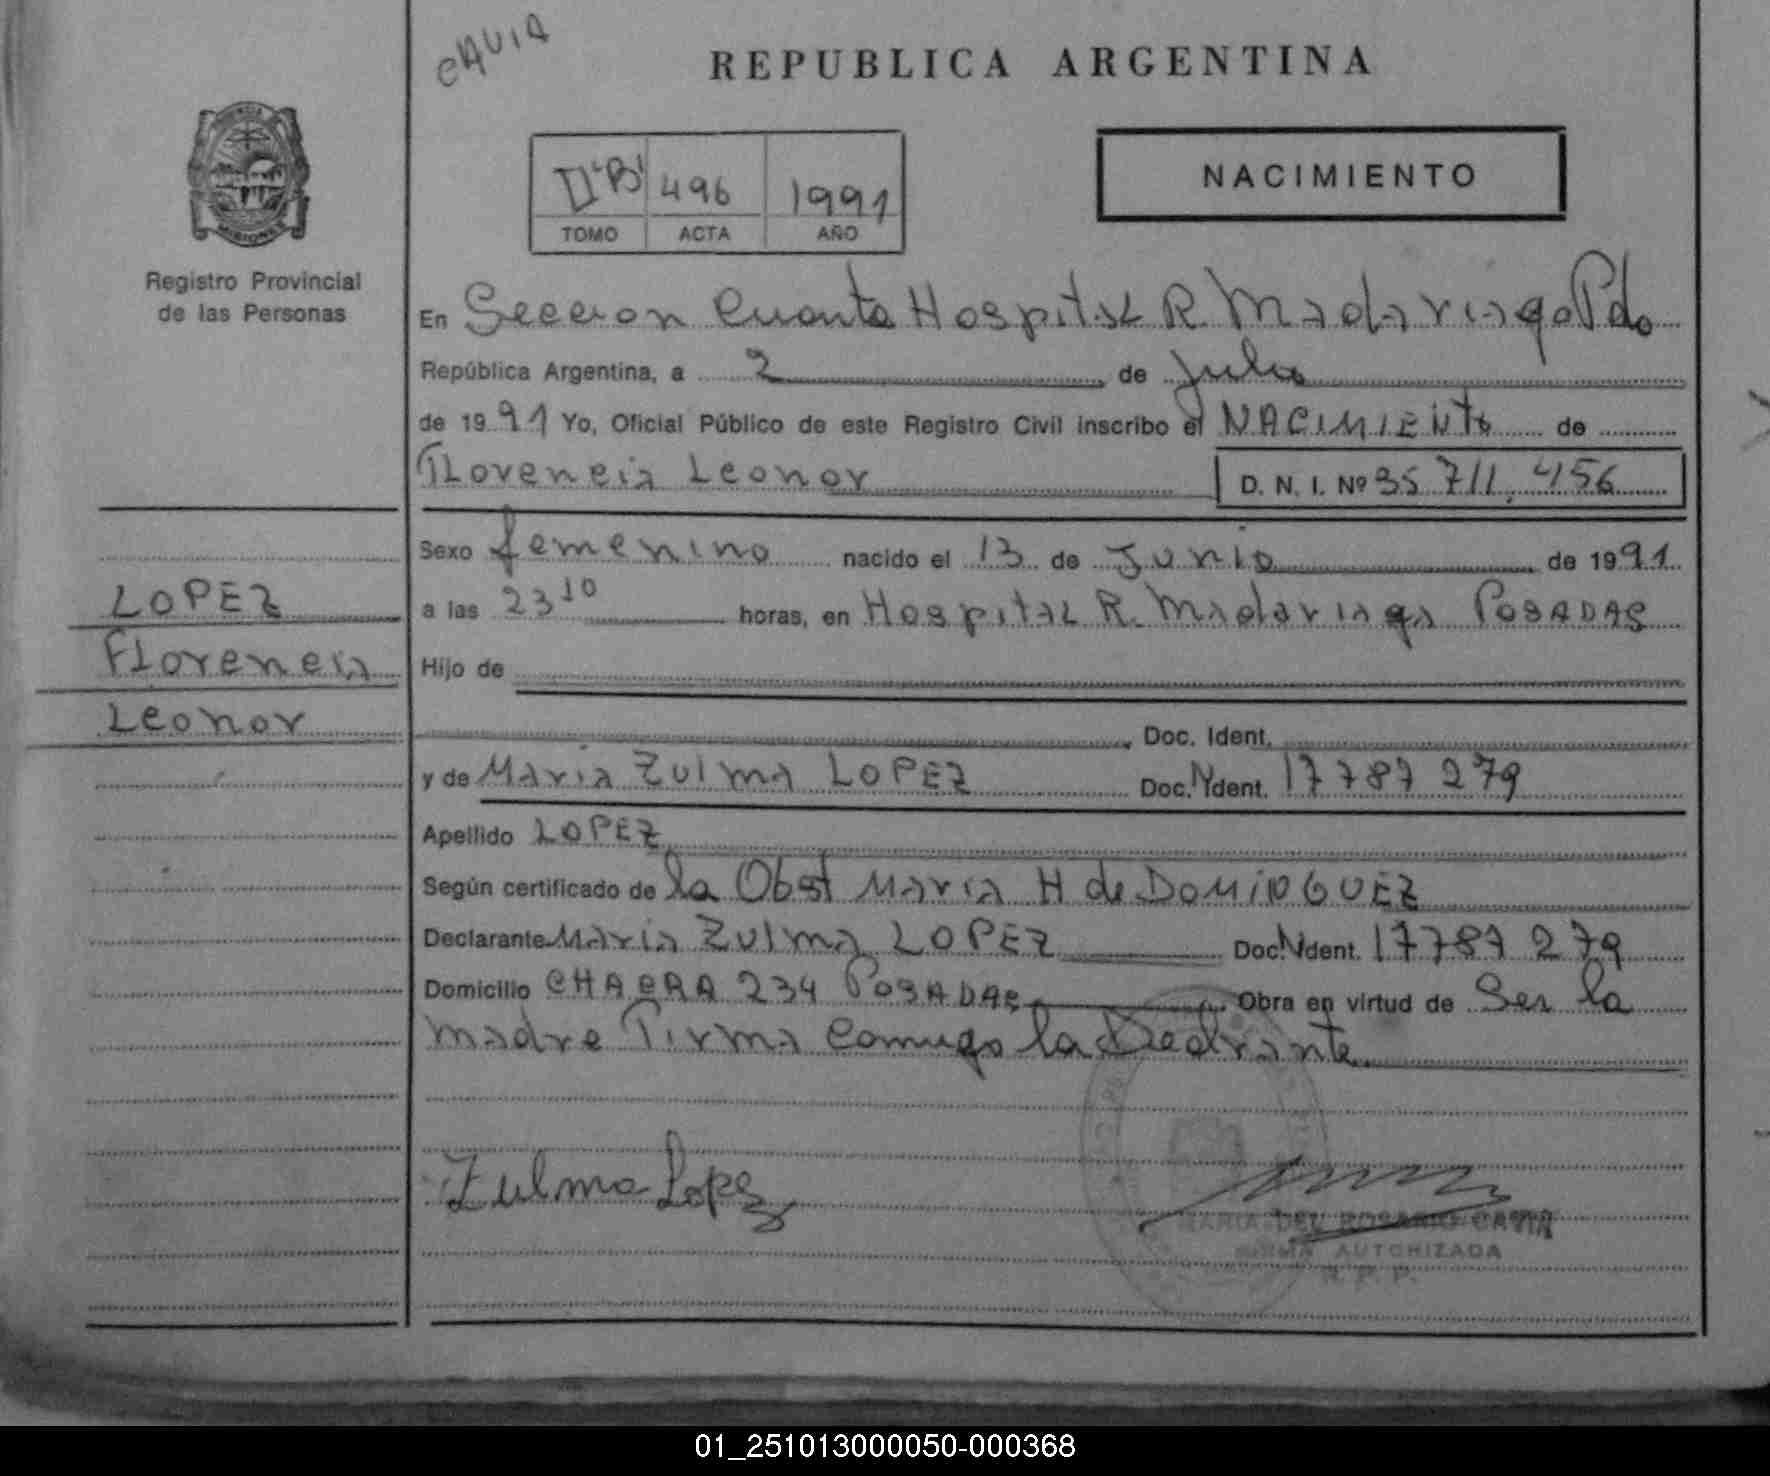 CAVIA
REPUBLICA ARGENTINA
NACIMIENTO
II "B" 496 1991
TOMO ACTA AÑO
MISIONES
Registro Provincial
de las Personas
En Seccion Cuarta Hospital R. Madariaga Pdo
República Argentina, a 2 de Julio
de 1991 Yo, Oficial Público de este Registro Civil inscribo el NACIMIENto de
Florencia Leonor D. N. I. Nº 35 711.456
Sexo femenino nacido el 13 de Junio de 1991
a las 23 10 horas, en Hospital R. Madariaga POSADAS
Hijo de
Doc. Ident.
y de Maria Zulma LOPEZ Doc. N Ident. 17787 279
Apellido LOPEZ
Según certificado de la Obst Maria H de DOMINGUEZ
Declarante Maria Zulma LOPEZ Doc. N Ident. 17787 279
Domicilio CHACRA 234 POSADAS Obra en virtud de Ser la
madre Firma Comigo la Declrante.
LOPEZ
Florencia
Leonor
Zulma Lopez
MARIA DEL ROSARIO CAVIA
FIRMA AUTORIZADA
R. P. P.
01_251013000050-000368